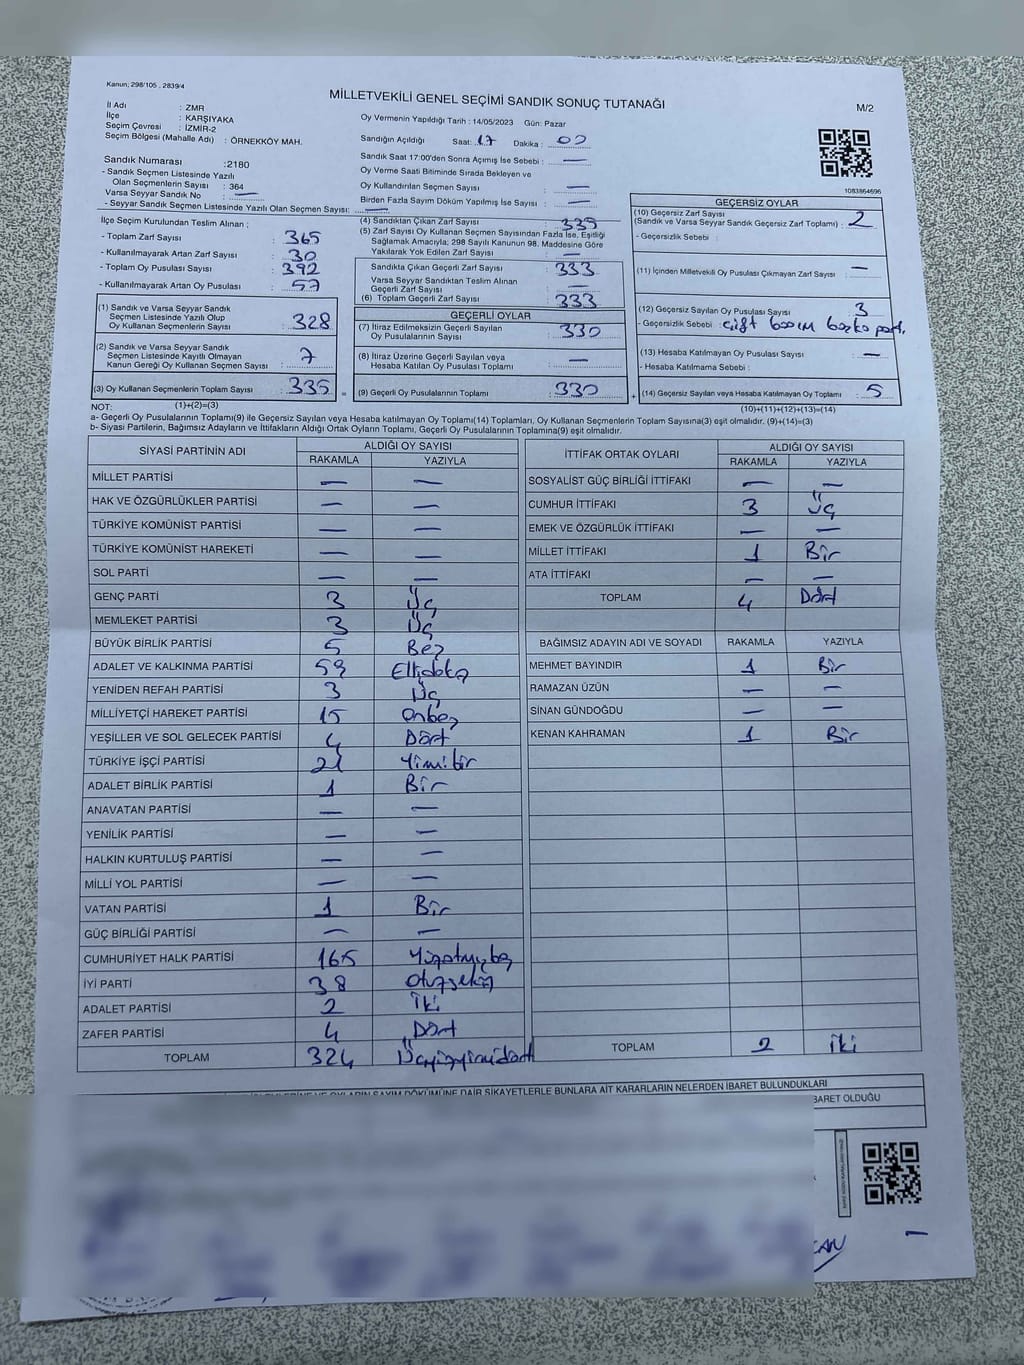 Kanun; 298/105 , 2839/4
MİLLETVEKİLİ GENEL SEÇİMİ SANDIK SONUÇ TUTANAĞI
M/2
İl Adı : ZMR
İlçe : KARŞIYAKA
Seçim Çevresi : İZMİR-2
Seçim Bölgesi (Mahalle Adı) : ÖRNEKKÖY MAH.
Sandık Numarası :2180
- Sandık Seçmen Listesinde Yazılı
Olan Seçmenlerin Sayısı : 364
Varsa Seyyar Sandık No : —
- Seyyar Sandık Seçmen Listesinde Yazılı Olan Seçmen Sayısı: —
İlçe Seçim Kurulundan Teslim Alınan ;
- Toplam Zarf Sayısı : 365
- Kullanılmayarak Artan Zarf Sayısı : 30
- Toplam Oy Pusulası Sayısı : 392
- Kullanılmayarak Artan Oy Pusulası : 57
(1) Sandık ve Varsa Seyyar Sandık
Seçmen Listesinde Yazılı Olup
Oy Kullanan Seçmenlerin Sayısı : 328
(2) Sandık ve Varsa Seyyar Sandık
Seçmen Listesinde Kayıtlı Olmayan
Kanun Gereği Oy Kullanan Seçmen Sayısı : 7
(3) Oy Kullanan Seçmenlerin Toplam Sayısı : 335
(1)+(2)=(3)
Oy Vermenin Yapıldığı Tarih : 14/05/2023 Gün: Pazar
Sandığın Açıldığı Saat: 17 Dakika : 00
Sandık Saat 17:00'den Sonra Açımış İse Sebebi : —
Oy Verme Saati Bitiminde Sırada Bekleyen ve
Oy Kullandırılan Seçmen Sayısı : —
Birden Fazla Sayım Döküm Yapılmış İse Sayısı : —
(4) Sandıktan Çıkan Zarf Sayısı : 335
(5) Zarf Sayısı Oy Kullanan Seçmen Sayısından Fazla İse, Eşitliği
Sağlamak Amacıyla; 298 Sayılı Kanunun 98. Maddesine Göre
Yakılarak Yok Edilen Zarf Sayısı : —
Sandıkta Çıkan Geçerli Zarf Sayısı : 333
Varsa Seyyar Sandıktan Teslim Alınan
Geçerli Zarf Sayısı : —
(6) Toplam Geçerli Zarf Sayısı : 333
GEÇERLİ OYLAR
(7) İtiraz Edilmeksizin Geçerli Sayılan
Oy Pusulalarının Sayısı : 330
(8) İtiraz Üzerine Geçerli Sayılan veya
Hesaba Katılan Oy Pusulası Toplamı : —
= (9) Geçerli Oy Pusulalarının Toplamı : 330
1083864696
GEÇERSİZ OYLAR
(10) Geçersiz Zarf Sayısı
(Sandık ve Varsa Seyyar Sandık Geçersiz Zarf Toplamı) : 2
- Geçersizlik Sebebi :
(11) İçinden Milletvekili Oy Pusulası Çıkmayan Zarf Sayısı : —
(12) Geçersiz Sayılan Oy Pusulası Sayısı : 3
- Geçersizlik Sebebi : çift basım
(13) Hesaba Katılmayan Oy Pusulası Sayısı : —
- Hesaba Katılmama Sebebi :
+ (14) Geçersiz Sayılan veya Hesaba Katılmayan Oy Toplamı : 5
(10)+(11)+(12)+(13)=(14)
NOT:
a- Geçerli Oy Pusulalarının Toplamı(9) ile Geçersiz Sayılan veya Hesaba katılmayan Oy Toplamı(14) Toplamları, Oy Kullanan Seçmenlerin Toplam Sayısına(3) eşit olmalıdır. (9)+(14)=(3)
b- Siyasi Partilerin, Bağımsız Adayların ve İttifakların Aldığı Ortak Oyların Toplamı, Geçerli Oy Pusulalarının Toplamına(9) eşit olmalıdır.
SİYASİ PARTİNİN ADI ALDIĞI OY SAYISI
RAKAMLA YAZIYLA
MİLLET PARTİSİ — —
HAK VE ÖZGÜRLÜKLER PARTİSİ — —
TÜRKİYE KOMÜNİST PARTİSİ — —
TÜRKİYE KOMÜNİST HAREKETİ — —
SOL PARTİ — —
GENÇ PARTİ 3 Üç
MEMLEKET PARTİSİ 3 Üç
BÜYÜK BİRLİK PARTİSİ 5 Beş
ADALET VE KALKINMA PARTİSİ 59 Ellidokz
YENİDEN REFAH PARTİSİ 3 Üç
MİLLİYETÇİ HAREKET PARTİSİ 15 onbeş
YEŞİLLER VE SOL GELECEK PARTİSİ 4 Dört
TÜRKİYE İŞÇİ PARTİSİ 21 Yimibir
ADALET BİRLİK PARTİSİ 1 Bir
ANAVATAN PARTİSİ — —
YENİLİK PARTİSİ — —
HALKIN KURTULUŞ PARTİSİ — —
MİLLİ YOL PARTİSİ — —
VATAN PARTİSİ 1 Bir
GÜÇ BİRLİĞİ PARTİSİ — —
CUMHURİYET HALK PARTİSİ 165 Yüzatmışbeş
İYİ PARTİ 38 otuzsekiz
ADALET PARTİSİ 2 İki
ZAFER PARTİSİ 4 Dört
TOPLAM 324 Üçyüzyirmidört
İTTİFAK ORTAK OYLARI ALDIĞI OY SAYISI
RAKAMLA YAZIYLA
SOSYALİST GÜÇ BİRLİĞİ İTTİFAKI — —
CUMHUR İTTİFAKI 3 Üç
EMEK VE ÖZGÜRLÜK İTTİFAKI — —
MİLLET İTTİFAKI 1 Bir
ATA İTTİFAKI — —
TOPLAM 4 Dört
BAĞIMSIZ ADAYIN ADI VE SOYADI RAKAMLA YAZIYLA
MEHMET BAYINDIR 1 Bir
RAMAZAN ÜZÜN — —
SİNAN GÜNDOĞDU — —
KENAN KAHRAMAN 1 Bir
TOPLAM 2 İki
OYLARIN SAYIM DÖKÜMÜNE DAİR ŞİKAYETLERLE BUNLARA AİT KARARLARIN NELERDEN İBARET BULUNDUKLARI
İBARET OLDUĞU